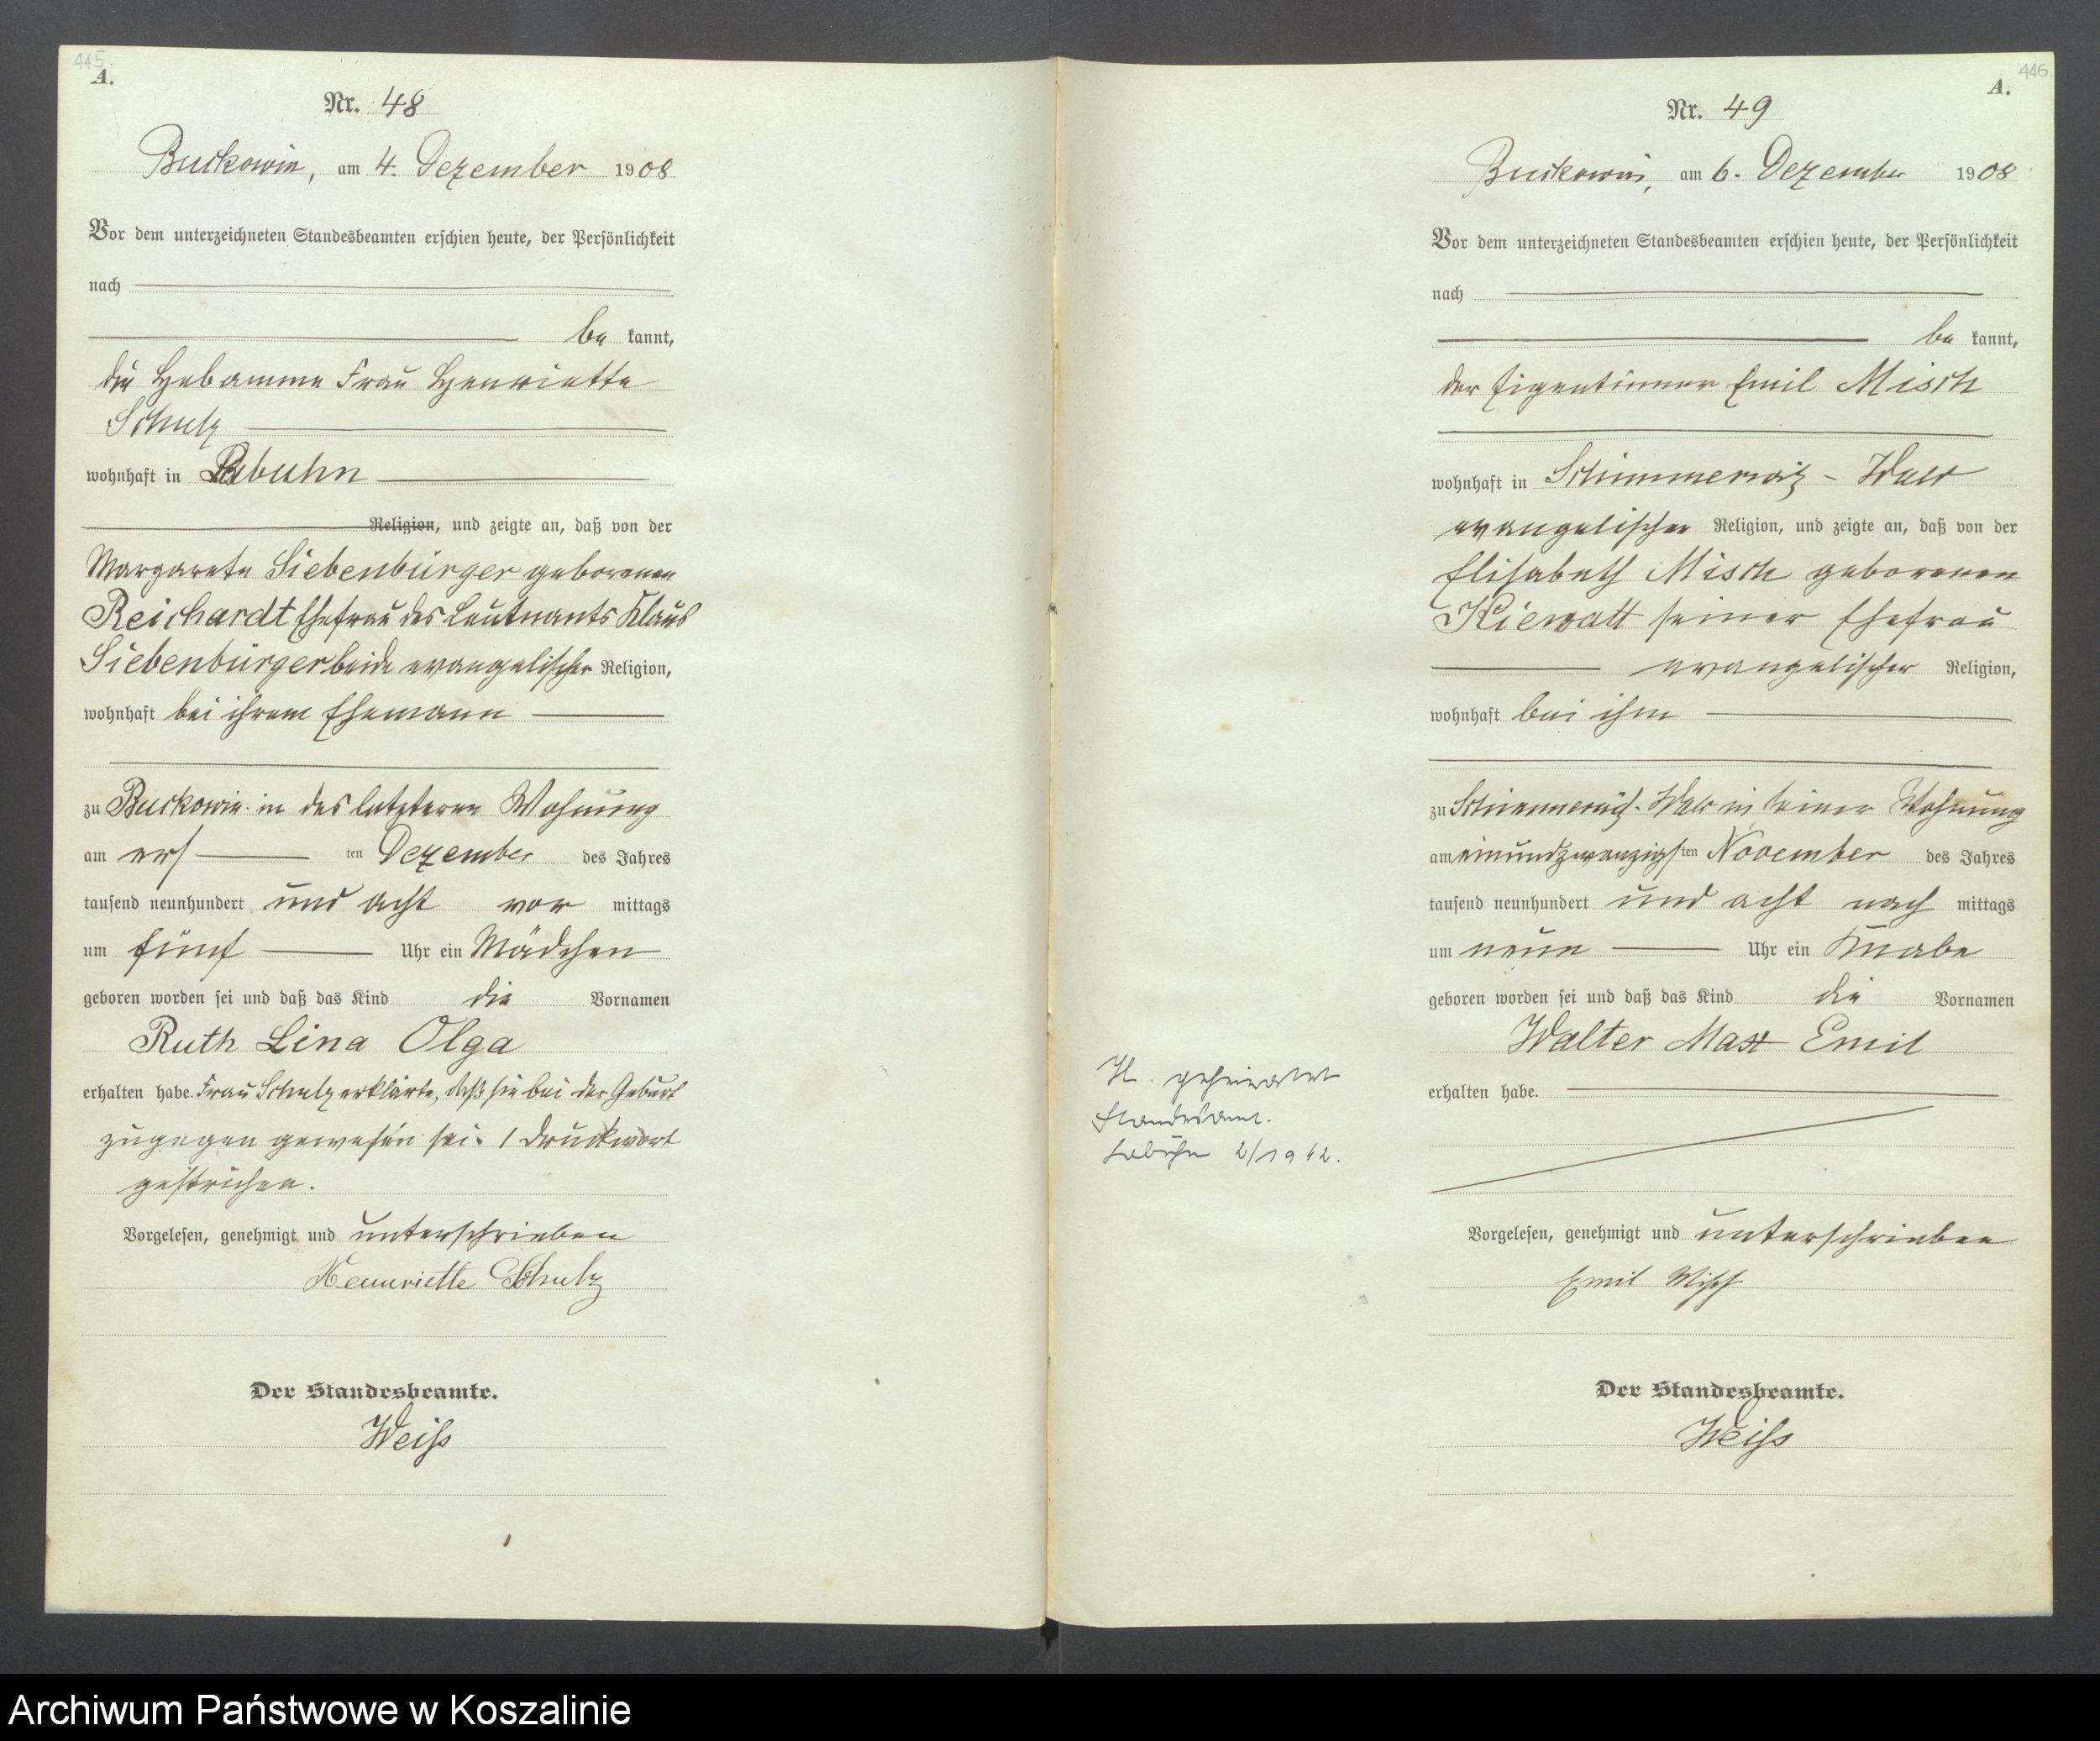 445.
A.
Nr. 48
Buckowin, am 4. Dezember 1908.
Vor dem unterzeichneten Standesbeamten erschien heute, der Persönlichkeit
nach
be kannt,
die Hebamme Frau Henriette
Schulz
wohnhaft in Labuhn
Religion, und zeigte an, daß von der
Margarete Siebenbürger geborenen
Reichardt Ehefrau des Leutnants Klaus
Siebenbürger beide evangelischer Religion,
wohnhaft bei ihrem Ehemann
zu Buckowin in des letzteren Wohnung
am ers ten Dezember des Jahres
tausend neunhundert und acht vor mittags
um fünf Uhr ein Mädchen
geboren worden sei und daß das Kind die Vornamen
Ruth Lina Olga
erhalten habe. Frau Schulz erklärte, daß sie bei der Geburt
zugegen gewesen sei. 1 Druckwort
gestrichen.
Vorgelesen, genehmigt und unterschrieben
Henriette Schulz
Der Standesbeamte.
Weiß
446.
A.
Nr. 49
Buckowin, am 6. Dezember 1908
Vor dem unterzeichneten Standesbeamten erschien heute, der Persönlichkeit
nach
be kannt,
der Eigentümer Emil Misch
wohnhaft in Schimmerwitz - Wald
evangelischer Religion, und zeigte an, daß von der
Elisabeth Misch geborenen
Kiewatt seiner Ehefrau
evangelischer Religion,
wohnhaft bei ihm
zu Schimmerwitz-Wald in seiner Wohnung
am einundzwanzigs ten November des Jahres
tausend neunhundert und acht nach mittags
um neun Uhr ein Knabe
geboren worden sei und daß das Kind die Vornamen
Walter Max Emil
erhalten habe.
geheiratet
Standesamt
Labuhn 2/1942.
Vorgelesen, genehmigt und unterschrieben
Emil Misch
Der Standesbeamte.
Weiß
Archiwum Państwowe w Koszalinie